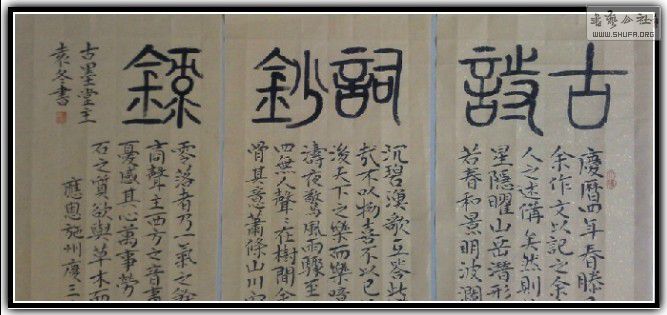 书艺公社
WWW.SHUFA.ORG
古詩
詞鈔
錄
慶曆四年春滕
余作文以記之余
人之述備矣然則
星隱曜山岳潛形
若春和景明波瀾
沉碧漁歌互答此
哉不以物喜不以己
後天下之樂而樂噫
濤夜驚風雨驟至
四無人聲聲在樹間余
骨其意蕭條山川
零落者乃一氣之餘
商聲主西方之音
憂感其心萬事勞
石之質欲與草木而
應恩施州唐三
古墨堂主
袁冬書